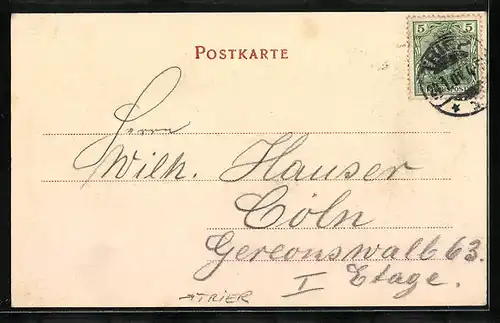 POSTKARTE
5 5
Herrn
Wilh. Hauser
Cöln
Gereonswall 63.
I Etage.
→TRIER